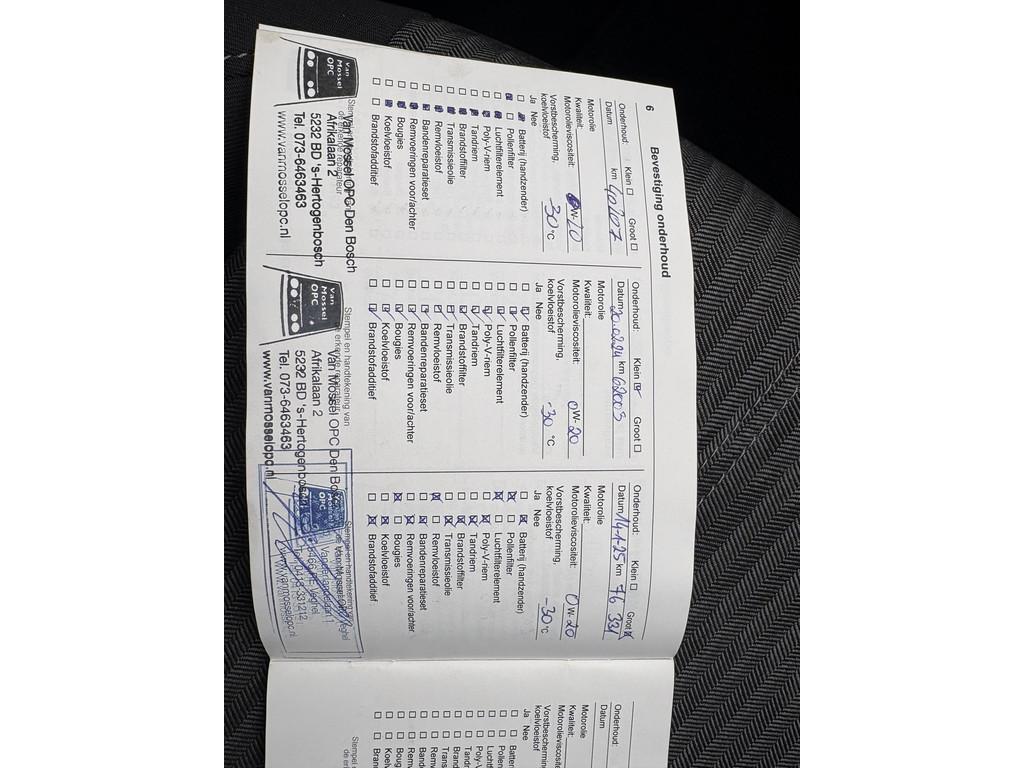 6
Bevestiging onderhoud
Onderhoud: Klein Groot
Datum km 40707
Motorolie
Kwaliteit:
Motorolieviscositeit: 0W-20
Vorstbescherming,
koelvloeistof -30 °C
Ja Nee
Batterij (handzender)
Pollenfilter
Luchtfilterelement
Poly-V-riem
Tandriem
Brandstoffilter
Transmissieolie
Remvloeistof
Bandenreparatieset
Remvoeringen voor/achter
Bougies
Koelvloeistof
Brandstofadditief
Van Mossel OPC
Van Mossel OPC Den Bosch
Afrikalaan 2
5232 BD 's-Hertogenbosch
Tel. 073-6463463
www.vanmosselopc.nl
Onderhoud: Klein Groot
Datum 20.02.24 km 62003
Motorolie
Kwaliteit:
Motorolieviscositeit: 0W-20
Vorstbescherming,
koelvloeistof -30 °C
Ja Nee
Batterij (handzender)
Pollenfilter
Luchtfilterelement
Poly-V-riem
Tandriem
Brandstoffilter
Transmissieolie
Remvloeistof
Bandenreparatieset
Remvoeringen voor/achter
Bougies
Koelvloeistof
Brandstofadditief
Stempel en handtekening van
Van Mossel OPC
Van Mossel OPC Den Bo
Afrikalaan 2
5232 BD 's-Hertogenbosch
Tel. 073-6463463
www.vanmosselopc.nl
Onderhoud: Klein Groot
Datum 14-1-25 km 76 331
Motorolie
Kwaliteit:
Motorolieviscositeit: 0W-20
Vorstbescherming,
koelvloeistof -30 °C
Ja Nee
Batterij (handzender)
Pollenfilter
Luchtfilterelement
Poly-V-riem
Tandriem
Brandstoffilter
Transmissieolie
Remvloeistof
Bandenreparatieset
Remvoeringen voor/achter
Bougies
Koelvloeistof
Brandstofadditief
Stempel en handtekening van
Van Mossel OPC
Veghel
0413-331212
www.vanmosselopc.nl
Onderhoud:
Datum
Motorolie
Kwaliteit:
Motorolieviscosite
Vorstbescherming
koelvloeistof
Ja Nee
Batter
Pollen
Luchtf
Poly-V
Tandri
Brand
Trans
Remv
Band
Remv
Boug
Koelv
Bran
Stempel e
de er